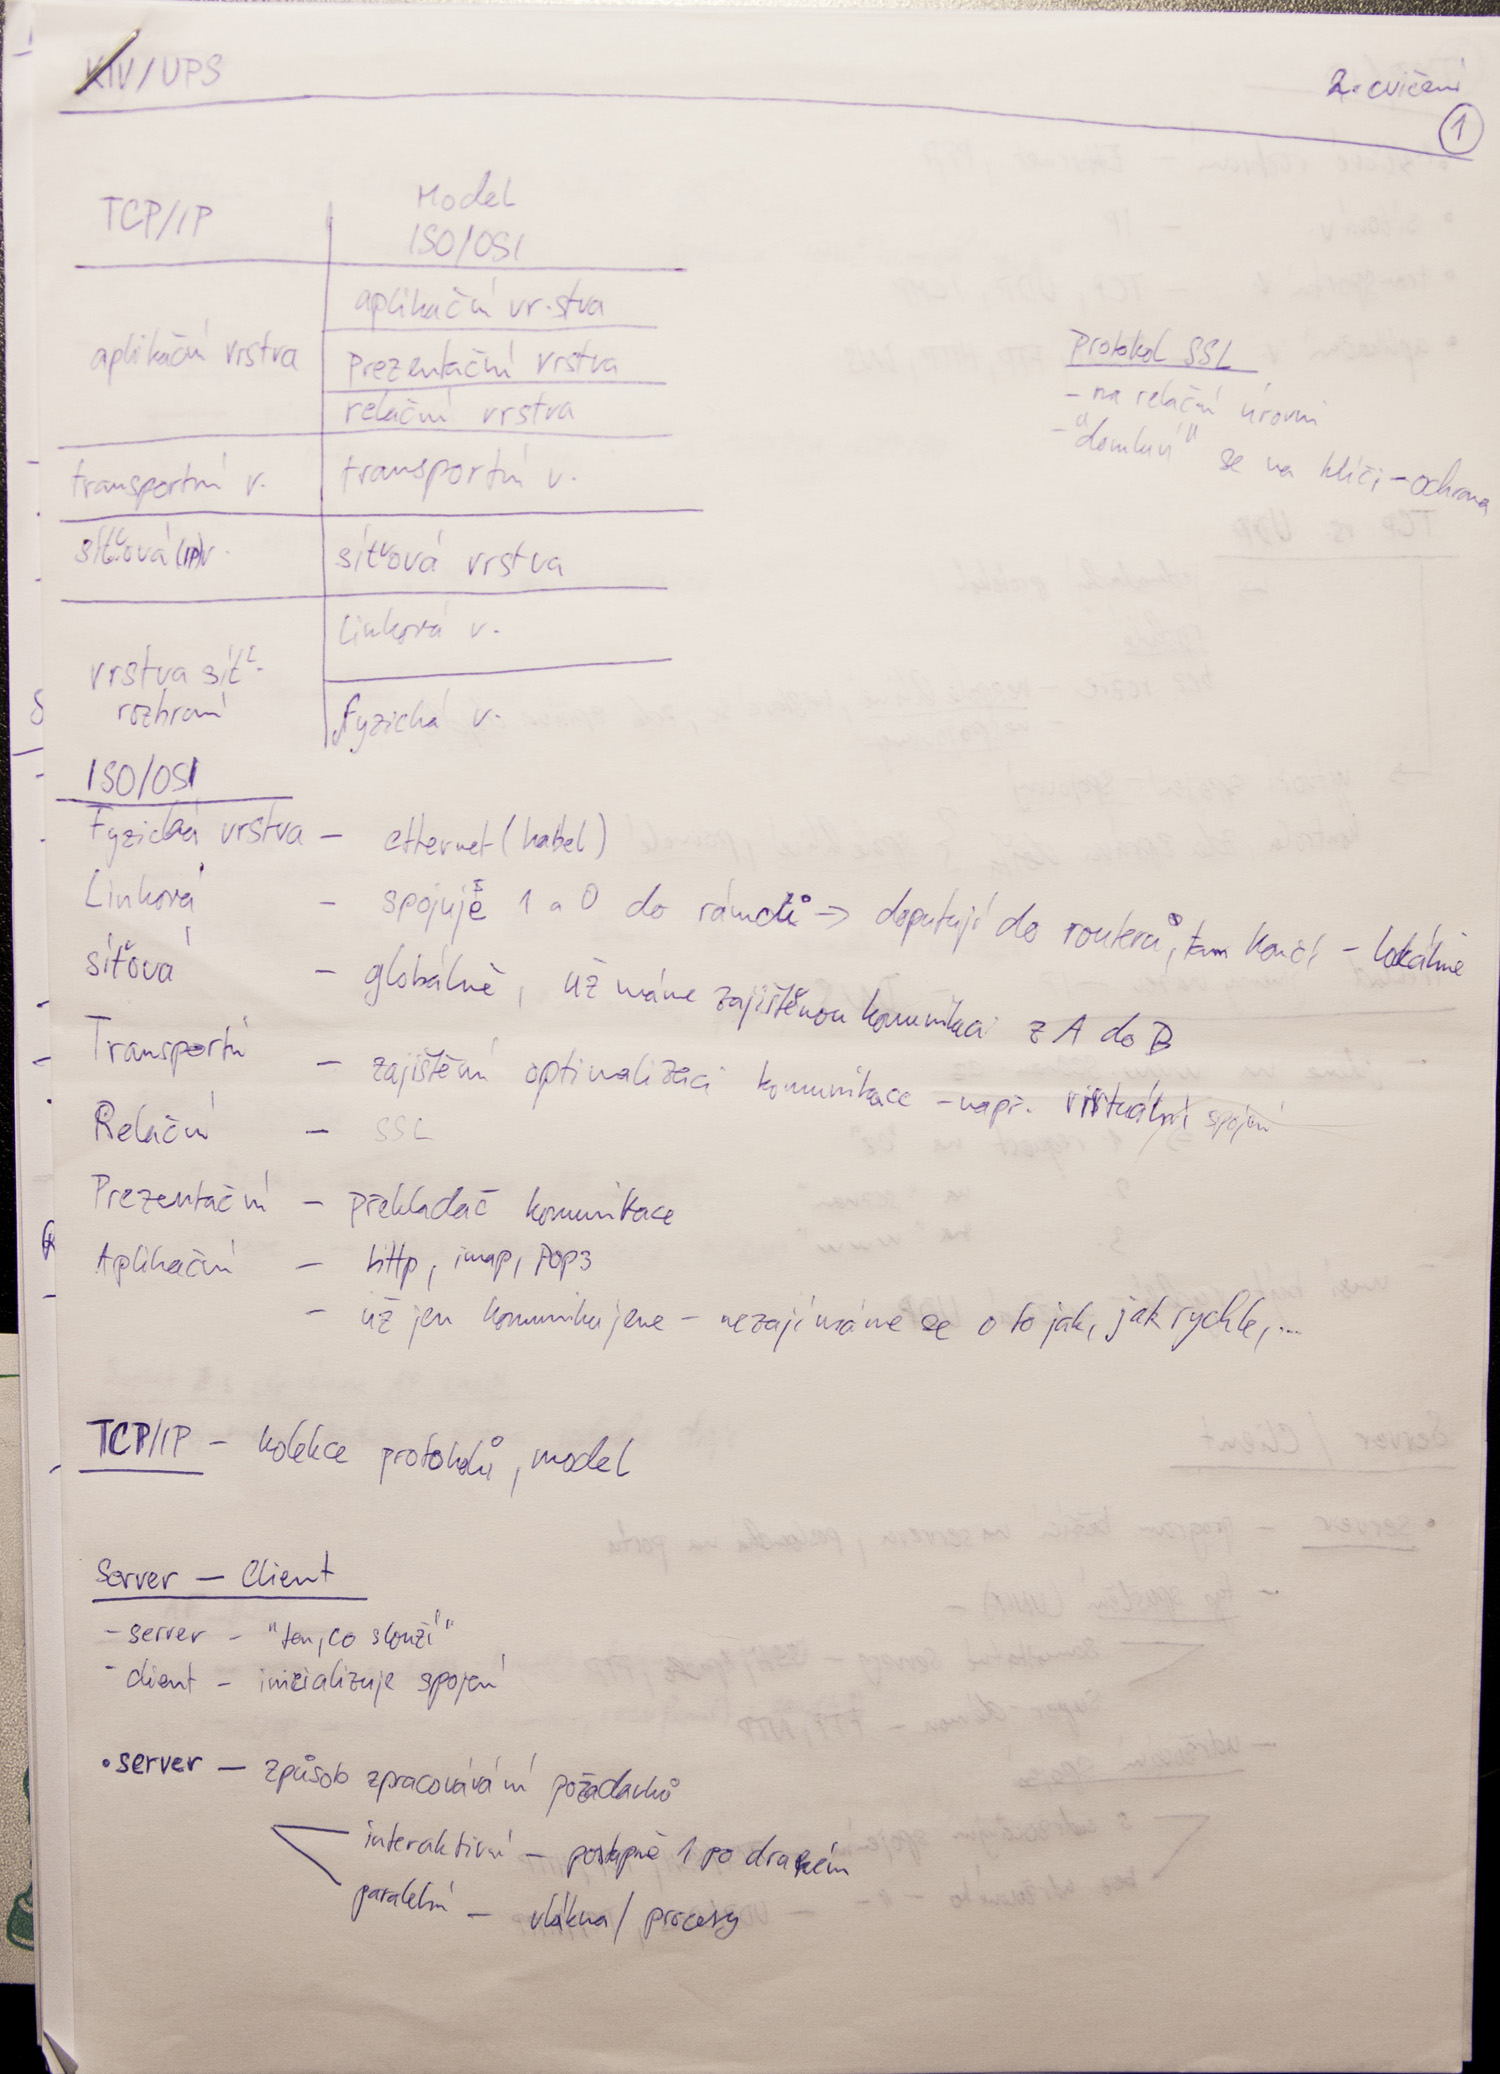 KIV/UPS
2. cvičení
1
TCP/IP
Model
ISO/OSI
aplikační vrstva
aplikační vrstva
prezentační vrstva
relační vrstva
transportní v.
transportní v.
síťová (IP) v.
síťová vrstva
vrstva síť.
rozhraní
Linková v.
fyzická v.
Protokol SSL
- na relační úrovni
- "domluví" se na klíči - ochrana
ISO/OSI
Fyzická vrstva - ethernet (kabel)
Linková - spojuje 1 a 0 do rámců -> doputují do routerů, tam končí - lokálně
síťová - globálně, už máme zajištěnou komunikaci z A do B
Transportní - zajištění optimalizaci komunikace - např. virtuální spojení
Relační - SSL
Prezentační - překladač komunikace
Aplikační - http, imap, pop3
- už jen komunikujeme - nezajímáme se o to jak, jak rychle, ...
TCP/IP - kolekce protokolů, model
Server - Client
- server - "ten, co slouží"
- client - inicializuje spojení
• server - způsob zpracovávání požadavků
interaktivní - postupně 1 po druhém
paralelní - vlákna / procesy